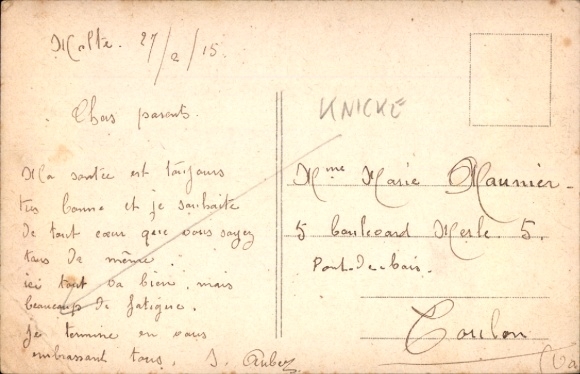 Malte. 27/2/15.
Chers parents.
Ma santée est toujours
très bonne et je souhaite
de tout cœur que vous soyez
tous de même.
ici tout va bien, mais
beaucoup de fatigue.
Je termine en vous
embrassant tous. J.
KNICKE
Mme Marie Maunier
5 boulevard Merle 5.
Pont-de-bois.
Toulon
(Va